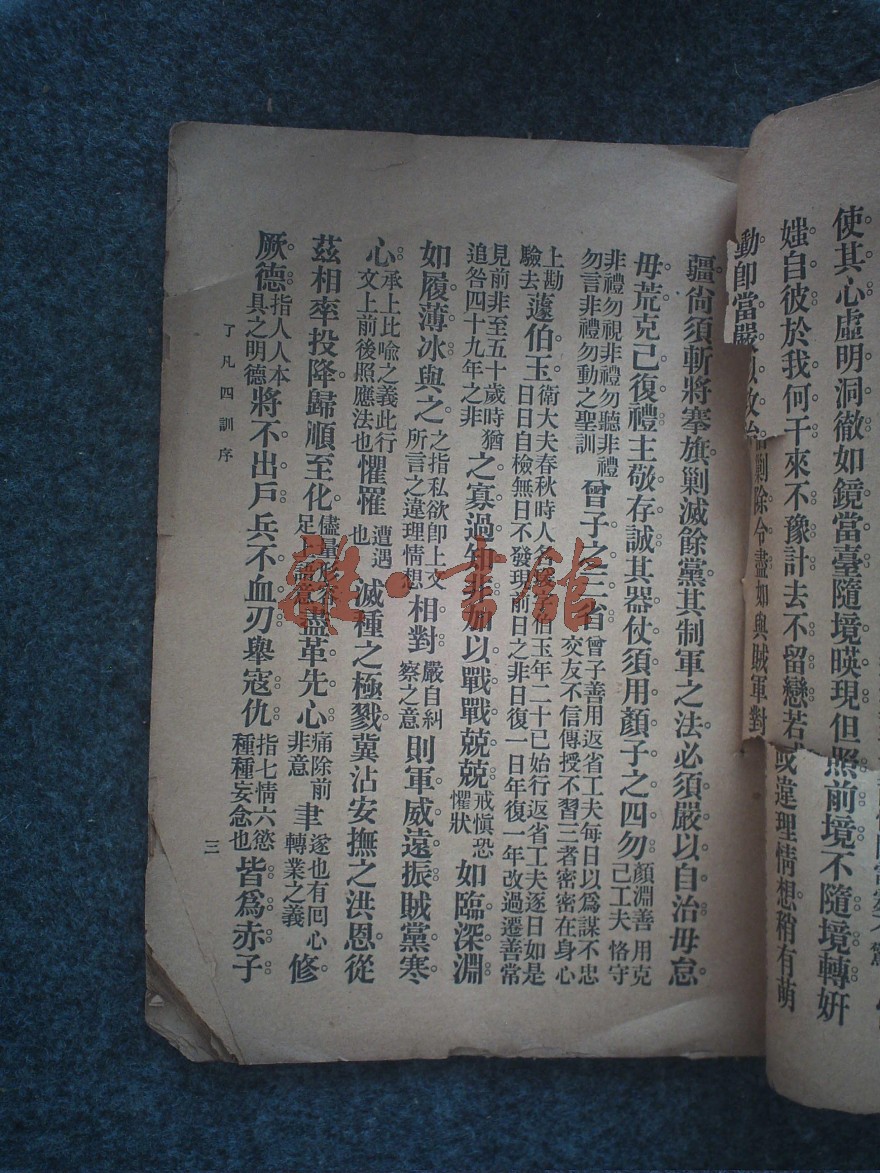 使其心虛明洞徹如鏡當臺隨境映現但照前境不隨境轉妍
媸自彼於我何干來不豫計去不留戀若或違理情想稍有萌
動卽當嚴以敌治剿除令盡如與賊軍對
疆尚須斬將搴旗剿滅餘黨其制軍之法必須嚴以自治毋怠
毋荒克己復禮主敬存誠其器仗須用顏子之四勿顏淵善用克己工夫恪守
非禮勿視非禮勿聽非禮勿言非禮勿動之聖訓曾子之三省曾子善用返省工夫每日以爲謀不忠交友不信傳授不習三者密密在身心
上勘驗去蘧伯玉衛大夫春秋時人名瑗字伯玉年二十已始行返省工夫逐日如是日日自檢無日不發現前日之非日復一日年復一年改過遷善常
見前非至五十歲時猶追咎四十九年之非之寡過知非加以戰戰兢兢戒愼恐懼狀如臨深淵
如履薄冰與之之指私欲卽上文所言之違理情想相對嚴自糾察之意則軍威遠振賊黨寒
心承上比喻之義此行文上前後照應法也懼罹遭遇也滅種之極戮冀沾安撫之洪恩從
茲相率投降歸順至化儘量形容足上語意盡革先心痛除前非意聿遂也有回心轉業之義修
厥德指人人本具之明德將不出戶兵不血刃舉寇仇指七情六慾種種妄念也皆爲赤子
了凡四訓序
三
雜·書館